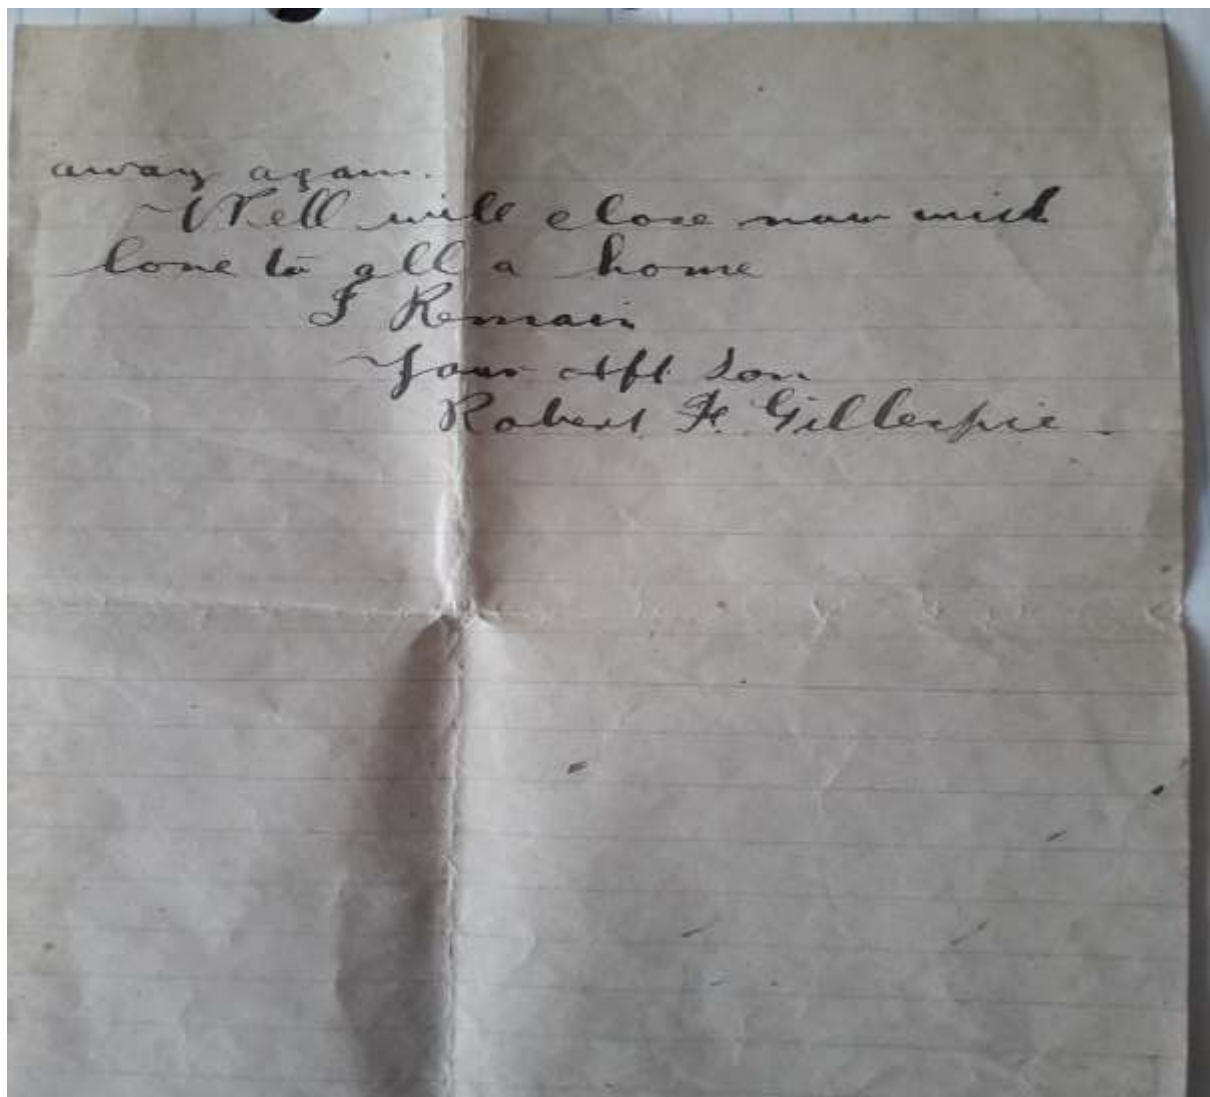 away again.
Well will close now with
love to all a home
I Remain
Your Aft Son
Robert F. Gillespie